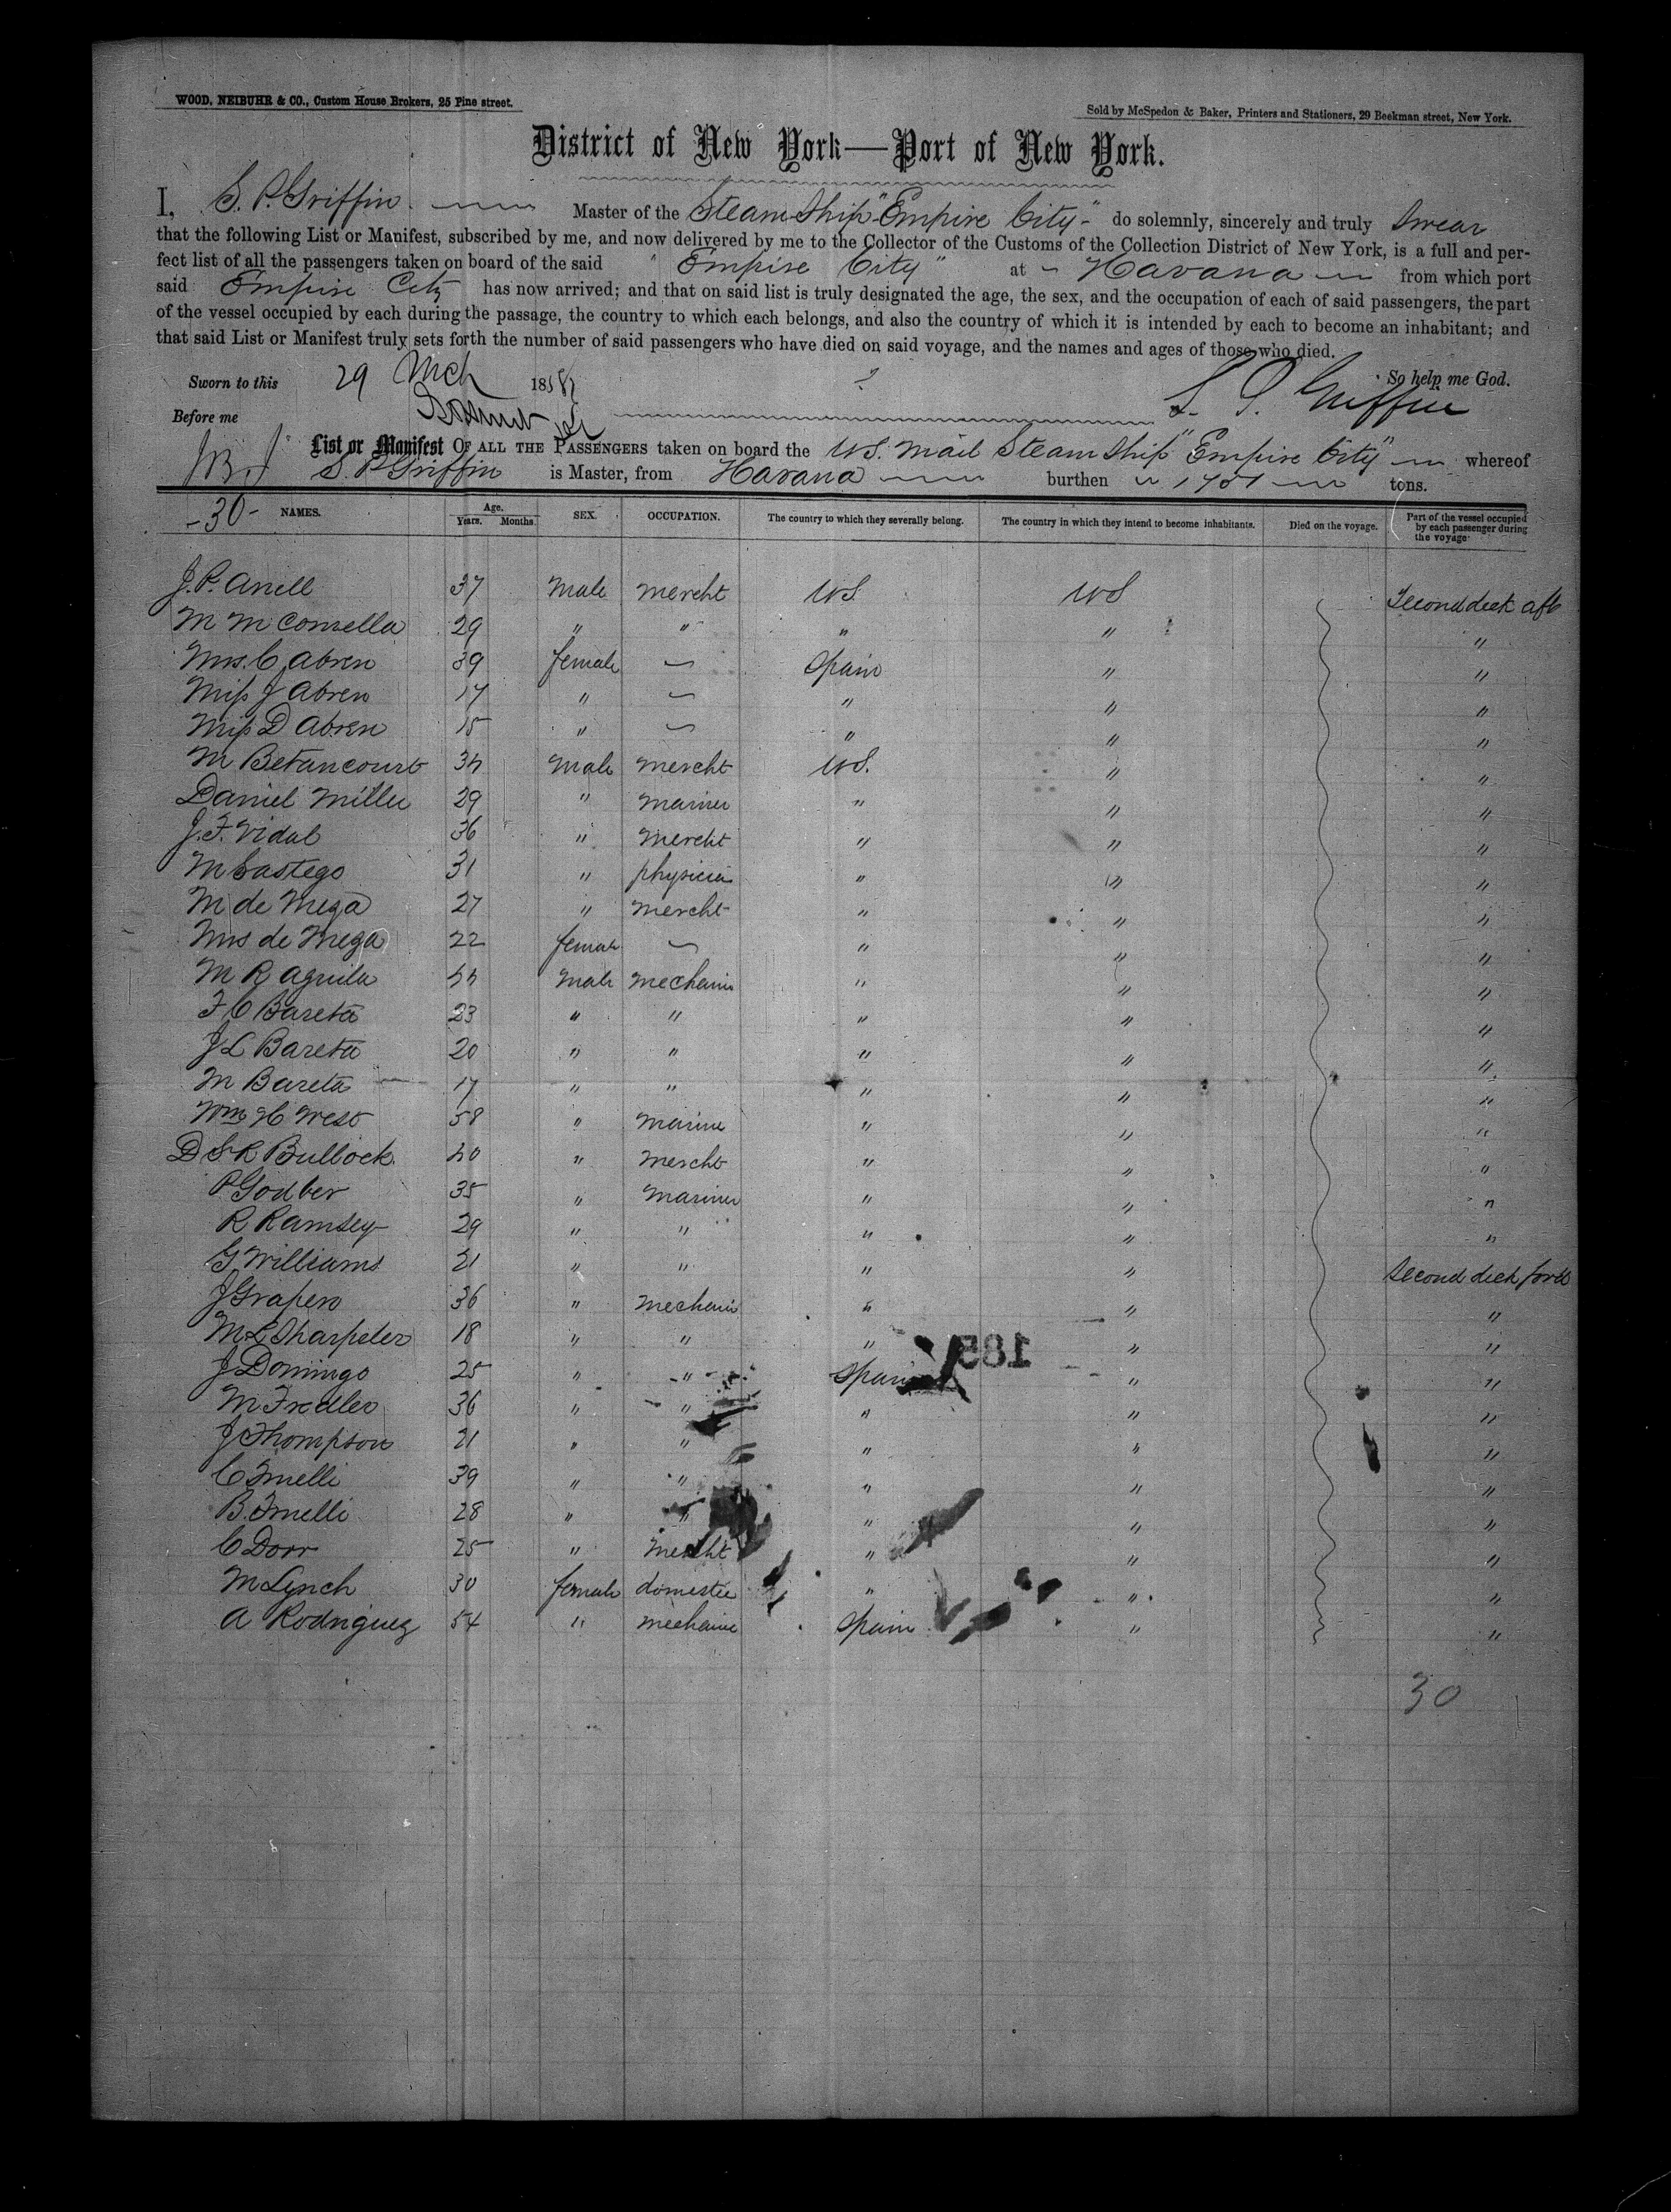 WOOD, NEIBUHR & CO., Custom House Brokers, 25 Pine street.
Sold by McSpedon & Baker, Printers and Stationers, 29 Beekman street, New York.
District of New York—Port of New York.
I, S. P. Griffin Master of the Steam Ship "Empire City" do solemnly, sincerely and truly Swear
that the following List or Manifest, subscribed by me, and now delivered by me to the Collector of the Customs of the Collection District of New York, is a full and per-
fect list of all the passengers taken on board of the said "Empire City" at Havana from which port
said Empire City has now arrived; and that on said list is truly designated the age, the sex, and the occupation of each of said passengers, the part
of the vessel occupied by each during the passage, the country to which each belongs, and also the country of which it is intended by each to become an inhabitant; and
that said List or Manifest truly sets forth the number of said passengers who have died on said voyage, and the names and ages of those who died.
Sworn to this 29 Mch 1858 So help me God.
Before me S. P. Griffin
List or Manifest OF ALL THE PASSENGERS taken on board the U.S. Mail Steam Ship "Empire City" whereof
S. P. Griffin is Master, from Havana burthen 1751 tons.
-30- NAMES. Age. Years. Months. SEX. OCCUPATION. The country to which they severally belong. The country in which they intend to become inhabitants. Died on the voyage. Part of the vessel occupied by each passenger during the voyage
J. P. Anell 37 Male Mercht US US Second deck aft
M M Comella 29 " " " " "
Mrs. C Abren 39 female — Spain " "
Miss J Abren 17 " — " " "
Miss D Abren 15 " — " " "
M Betancourt 34 Male Mercht US. " "
Daniel Miller 29 " Mariner " " "
J. F. Vidal 36 " Mercht " " "
M Castego 31 " physician " " "
M de Mega 27 " Mercht " " "
Mrs de Mega 22 female — " " "
M R Aguila 44 Male Mechanic " " "
F C Bareta 23 " " " " "
J L Bareta 20 " " " " "
M Bareta 17 " " " " "
Wm H West 58 " Marine " " "
D S R Bullock 40 " Mercht " " "
P Godber 35 " Mariner " " "
R Ramsey 29 " " " " "
G Williams 21 " " " " Second deck forwd
J Grapero 36 " Mechanic " " "
M L Sharpeler 18 " " " " "
185
J Domingo 25 " " Spain " "
M Fredler 36 " " " " "
J Thompson 21 " " " " "
C Fmelli 39 " " " " "
B. Fmelli 28 " " " " "
C Dorr 25 " Mercht " " "
M Lynch 30 female domestic " " "
A Rodriguez 54 " Mechanic Spain " "
30